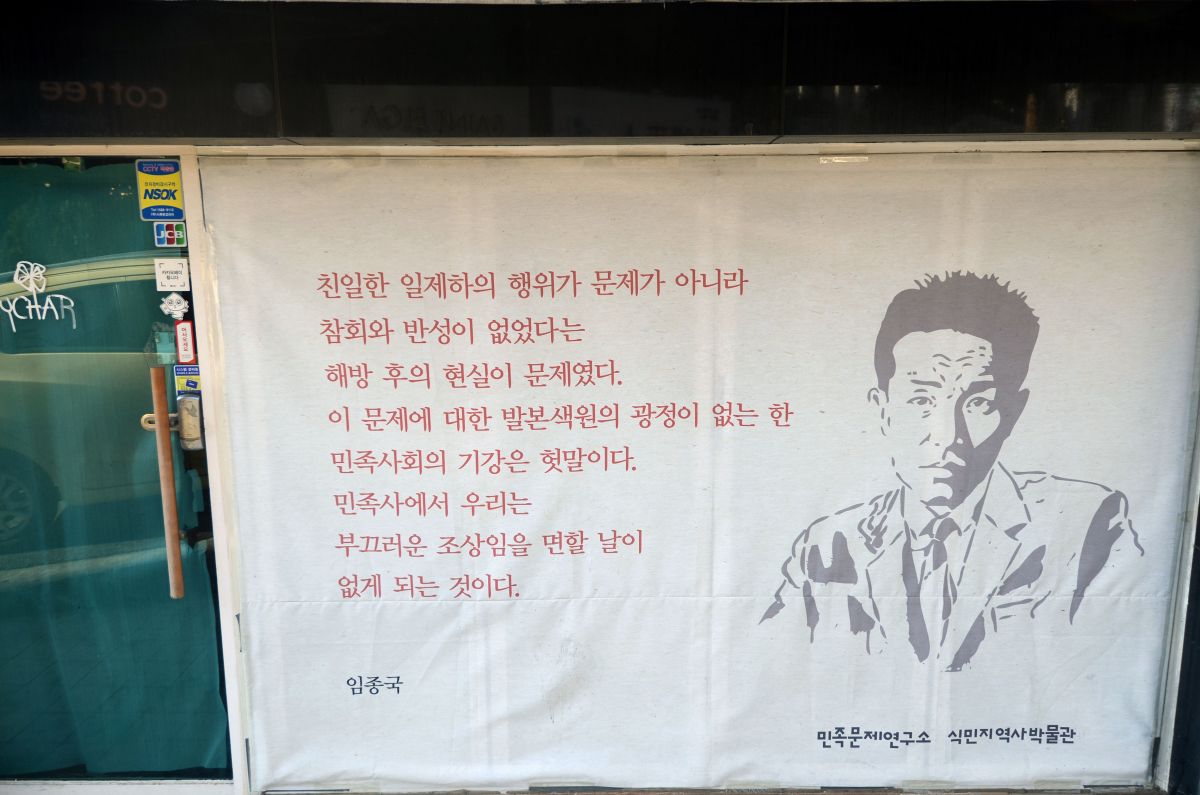 coffee
CCTV
NSOK
JCB
YCHAR
친일한 일제하의 행위가 문제가 아니라
참회와 반성이 없었다는
해방 후의 현실이 문제였다.
이 문제에 대한 발본색원의 광정이 없는 한
민족사회의 기강은 헛말이다.
민족사에서 우리는
부끄러운 조상임을 면할 날이
없게 되는 것이다.
임종국
민족문제연구소 식민지역사박물관